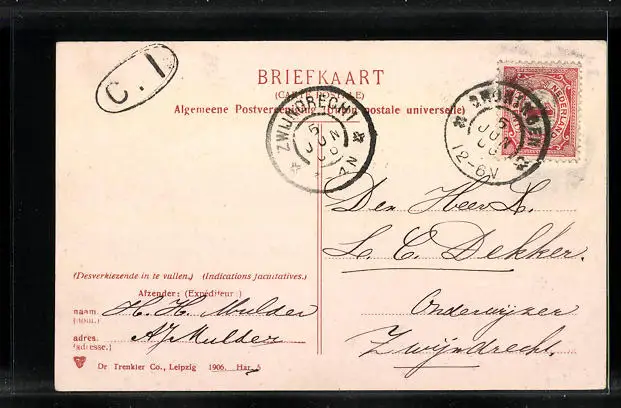 C. 1
BRIEFKAART
(CARTE POSTALE)
Algemeene Postvereeniging (Union postale universelle)
NEDERLAND
ZWIJNDRECHT
5 JUN
5 JUN
12-6V
Den Heer
L. C. Dekker.
Onderwijzer
Zwijndrecht.
(Desverkiezende in te vullen.) (Indications facultatives.)
Afzender: (Expéditeur:)
naam. H. H. Mulder
(nom.)
adres. Mulder
(adresse.)
Dr Trenkler Co., Leipzig 1906. Har. 5